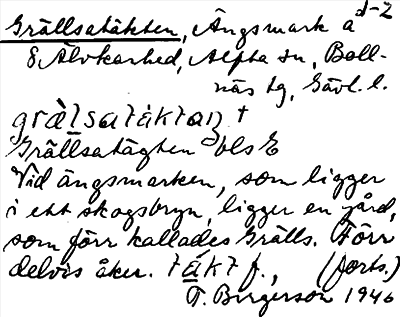 Grällsatäkten, Ängsmark a
d-2
S Älvkarhed, Alfta sn, Boll-
näs tg, Gävl. l.
Grällsatägten bls E
Vid ängsmarken, som ligger
i ett skogsbryn, ligger en gård,
som förr kallades Grälls. Förr
delvis åker. f., (forts.)
T. Birgerson 1946